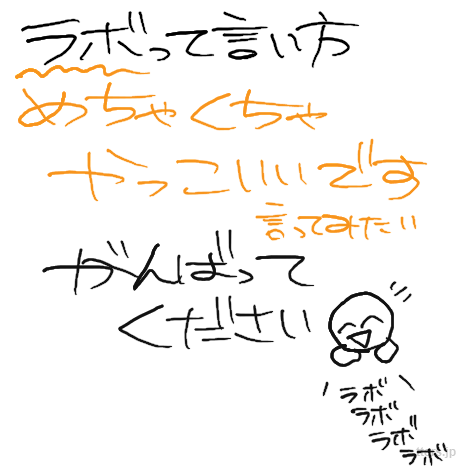 ラボって言い方
めちゃくちゃ
やっこいいです
言ってみたい
がんばって
ください
ラボ
ラボ
ラボ
ラボ